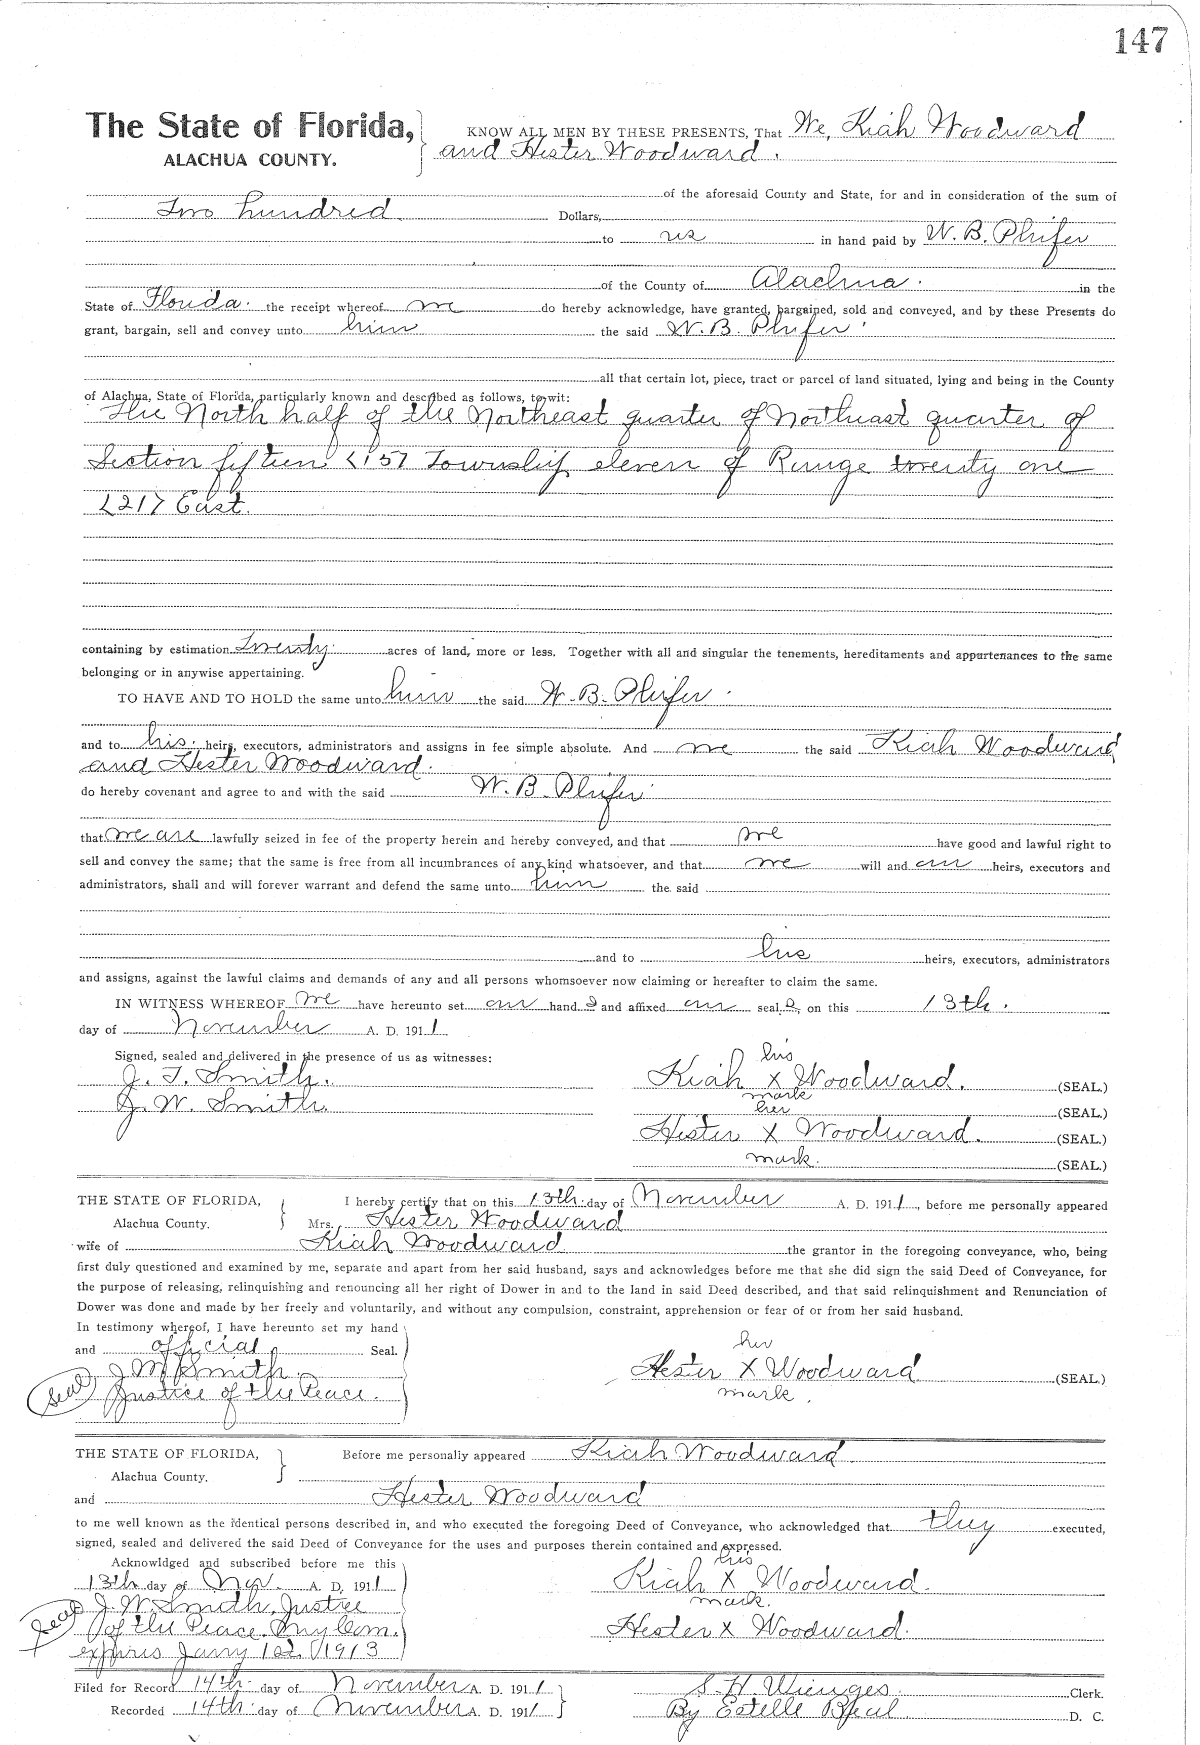 147
The State of Florida,
ALACHUA COUNTY.
KNOW ALL MEN BY THESE PRESENTS, That We, Kiah Woodward
and Hester Woodward.
of the aforesaid County and State, for and in consideration of the sum of
Two hundred Dollars,
to us in hand paid by W. B. Phifer
of the County of Alachua. in the
State of Florida. the receipt whereof we do hereby acknowledge, have granted, bargained, sold and conveyed, and by these Presents do
grant, bargain, sell and convey unto him the said W. B. Phifer
all that certain lot, piece, tract or parcel of land situated, lying and being in the County
of Alachua, State of Florida, particularly known and described as follows, to-wit:
The North half of the Northeast quarter of Northeast quarter of
Section fifteen <15> Township eleven of Range twenty one
<21> East.
containing by estimation Twenty acres of land, more or less. Together with all and singular the tenements, hereditaments and appurtenances to the same
belonging or in anywise appertaining.
TO HAVE AND TO HOLD the same unto him the said W. B. Phifer.
and to his heirs, executors, administrators and assigns in fee simple absolute. And we the said Kiah Woodward
and Hester Woodward.
do hereby covenant and agree to and with the said W. B. Phifer
that we are lawfully seized in fee of the property herein and hereby conveyed, and that we have good and lawful right to
sell and convey the same; that the same is free from all incumbrances of any kind whatsoever, and that we will and our heirs, executors and
administrators, shall and will forever warrant and defend the same unto him the said
and to his heirs, executors, administrators
and assigns, against the lawful claims and demands of any and all persons whomsoever now claiming or hereafter to claim the same.
IN WITNESS WHEREOF we have hereunto set our hand s and affixed our seal s, on this 13th.
day of November A. D. 1911
Signed, sealed and delivered in the presence of us as witnesses:
J. T. Smith.
J. W. Smith.
his
Kiah X Woodward. (SEAL.)
mark
(SEAL.)
her
Hester X Woodward. (SEAL.)
mark.
(SEAL.)
THE STATE OF FLORIDA,
Alachua County.
I hereby certify that on this 13th day of November A. D. 1911, before me personally appeared
Mrs. Hester Woodward
wife of Kiah Woodward the grantor in the foregoing conveyance, who, being
first duly questioned and examined by me, separate and apart from her said husband, says and acknowledges before me that she did sign the said Deed of Conveyance, for
the purpose of releasing, relinquishing and renouncing all her right of Dower in and to the land in said Deed described, and that said relinquishment and Renunciation of
Dower was done and made by her freely and voluntarily, and without any compulsion, constraint, apprehension or fear of or from her said husband.
In testimony whereof, I have hereunto set my hand
and official Seal.
J. W. Smith.
Seal Justice of the Peace.
her
Hester X Woodward (SEAL.)
mark.
THE STATE OF FLORIDA,
Alachua County.
Before me personally appeared Kiah Woodward
and Hester Woodward
to me well known as the identical persons described in, and who executed the foregoing Deed of Conveyance, who acknowledged that they executed,
signed, sealed and delivered the said Deed of Conveyance for the uses and purposes therein contained and expressed.
Acknowldged and subscribed before me this
13th day of Nov. A. D. 1911
Seal J. W. Smith, Justice
of the Peace. My Com.
expires Jany 1st. 1913
his
Kiah X Woodward.
mark.
Hester X Woodward.
Filed for Record 14th day of November A. D. 1911
Recorded 14th day of November A. D. 1911
S. H. Wienges Clerk.
By Estelle Beal D. C.